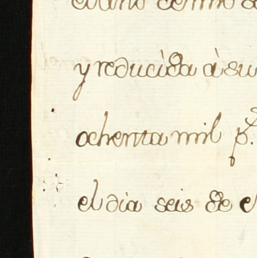 y reducida à su
ochenta mil p.
el dia seis de